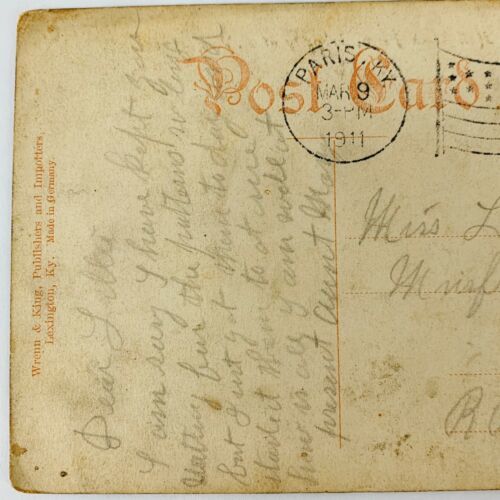 Post Card
PARIS, KY.
MAR 9
3-PM
1911
Wrenn & King, Publishers and Importers,
Lexington, Ky. Made in Germany.
Dear
I am sorry I have kept you
waiting for the patterns so long
but I just got them to day and
started them to at once
I am well at
present Aunt
Miss L